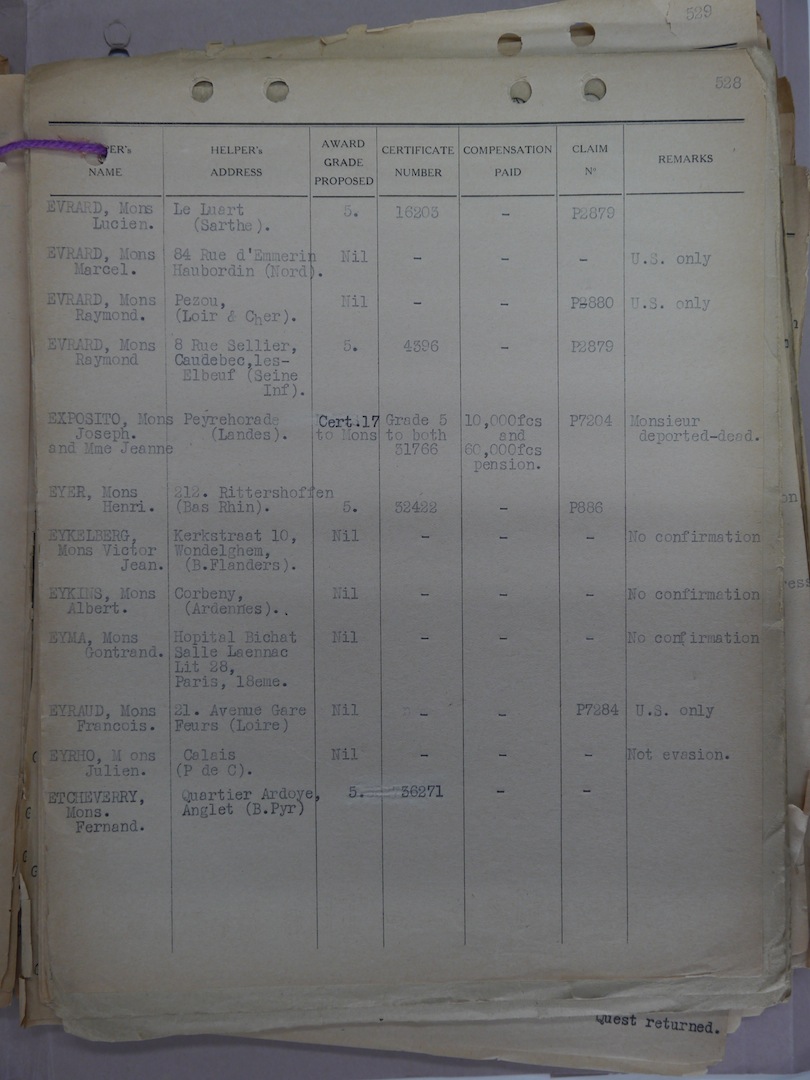 529
528
ER's NAME
HELPER's ADDRESS
AWARD GRADE PROPOSED
CERTIFICATE NUMBER
COMPENSATION PAID
CLAIM No
REMARKS
EVRARD, Mons Le Luart 5. 16203 - P2879
Lucien. (Sarthe).
EVRARD, Mons 84 Rue d'Emmerin Nil - - - U.S. only
Marcel. Haubordin (Nord).
EVRARD, Mons Pezou, Nil - - P2880 U.S. only
Raymond. (Loir & Cher).
EVRARD, Mons 8 Rue Sellier, 5. 4396 - P2879
Raymond Caudebec,les-
Elbeuf (Seine
Inf).
EXPOSITO, Mons Peyrehorade Cert.17 Grade 5 10,000fcs P7204 Monsieur
Joseph. (Landes). to Mons to both and deported-dead.
and Mme Jeanne 31766 60,000fcs
pension.
EYER, Mons 212. Rittershoffen
Henri. (Bas Rhin). 5. 32422 - P886
EYKELBERG, Kerkstraat 10, Nil - - - No confirmation
Mons Victor Wondelghem,
Jean. (B.Flanders).
EYKINS, Mons Corbeny, Nil - - - No confirmation
Albert. (Ardennes)..
EYMA, Mons Hopital Bichat Nil - - - No confirmation
Gontrand. Salle Laennac
Lit 28,
Paris, 18eme.
EYRAUD, Mons 21. Avenue Gare Nil - - P7284 U.S. only
Francois. Feurs (Loire)
EYRHO, M ons Calais Nil - - - Not evasion.
Julien. (P de C).
ETCHEVERRY, Quartier Ardoye, 5. 36271 - -
Mons. Anglet (B.Pyr)
Fernand.
Quest returned.